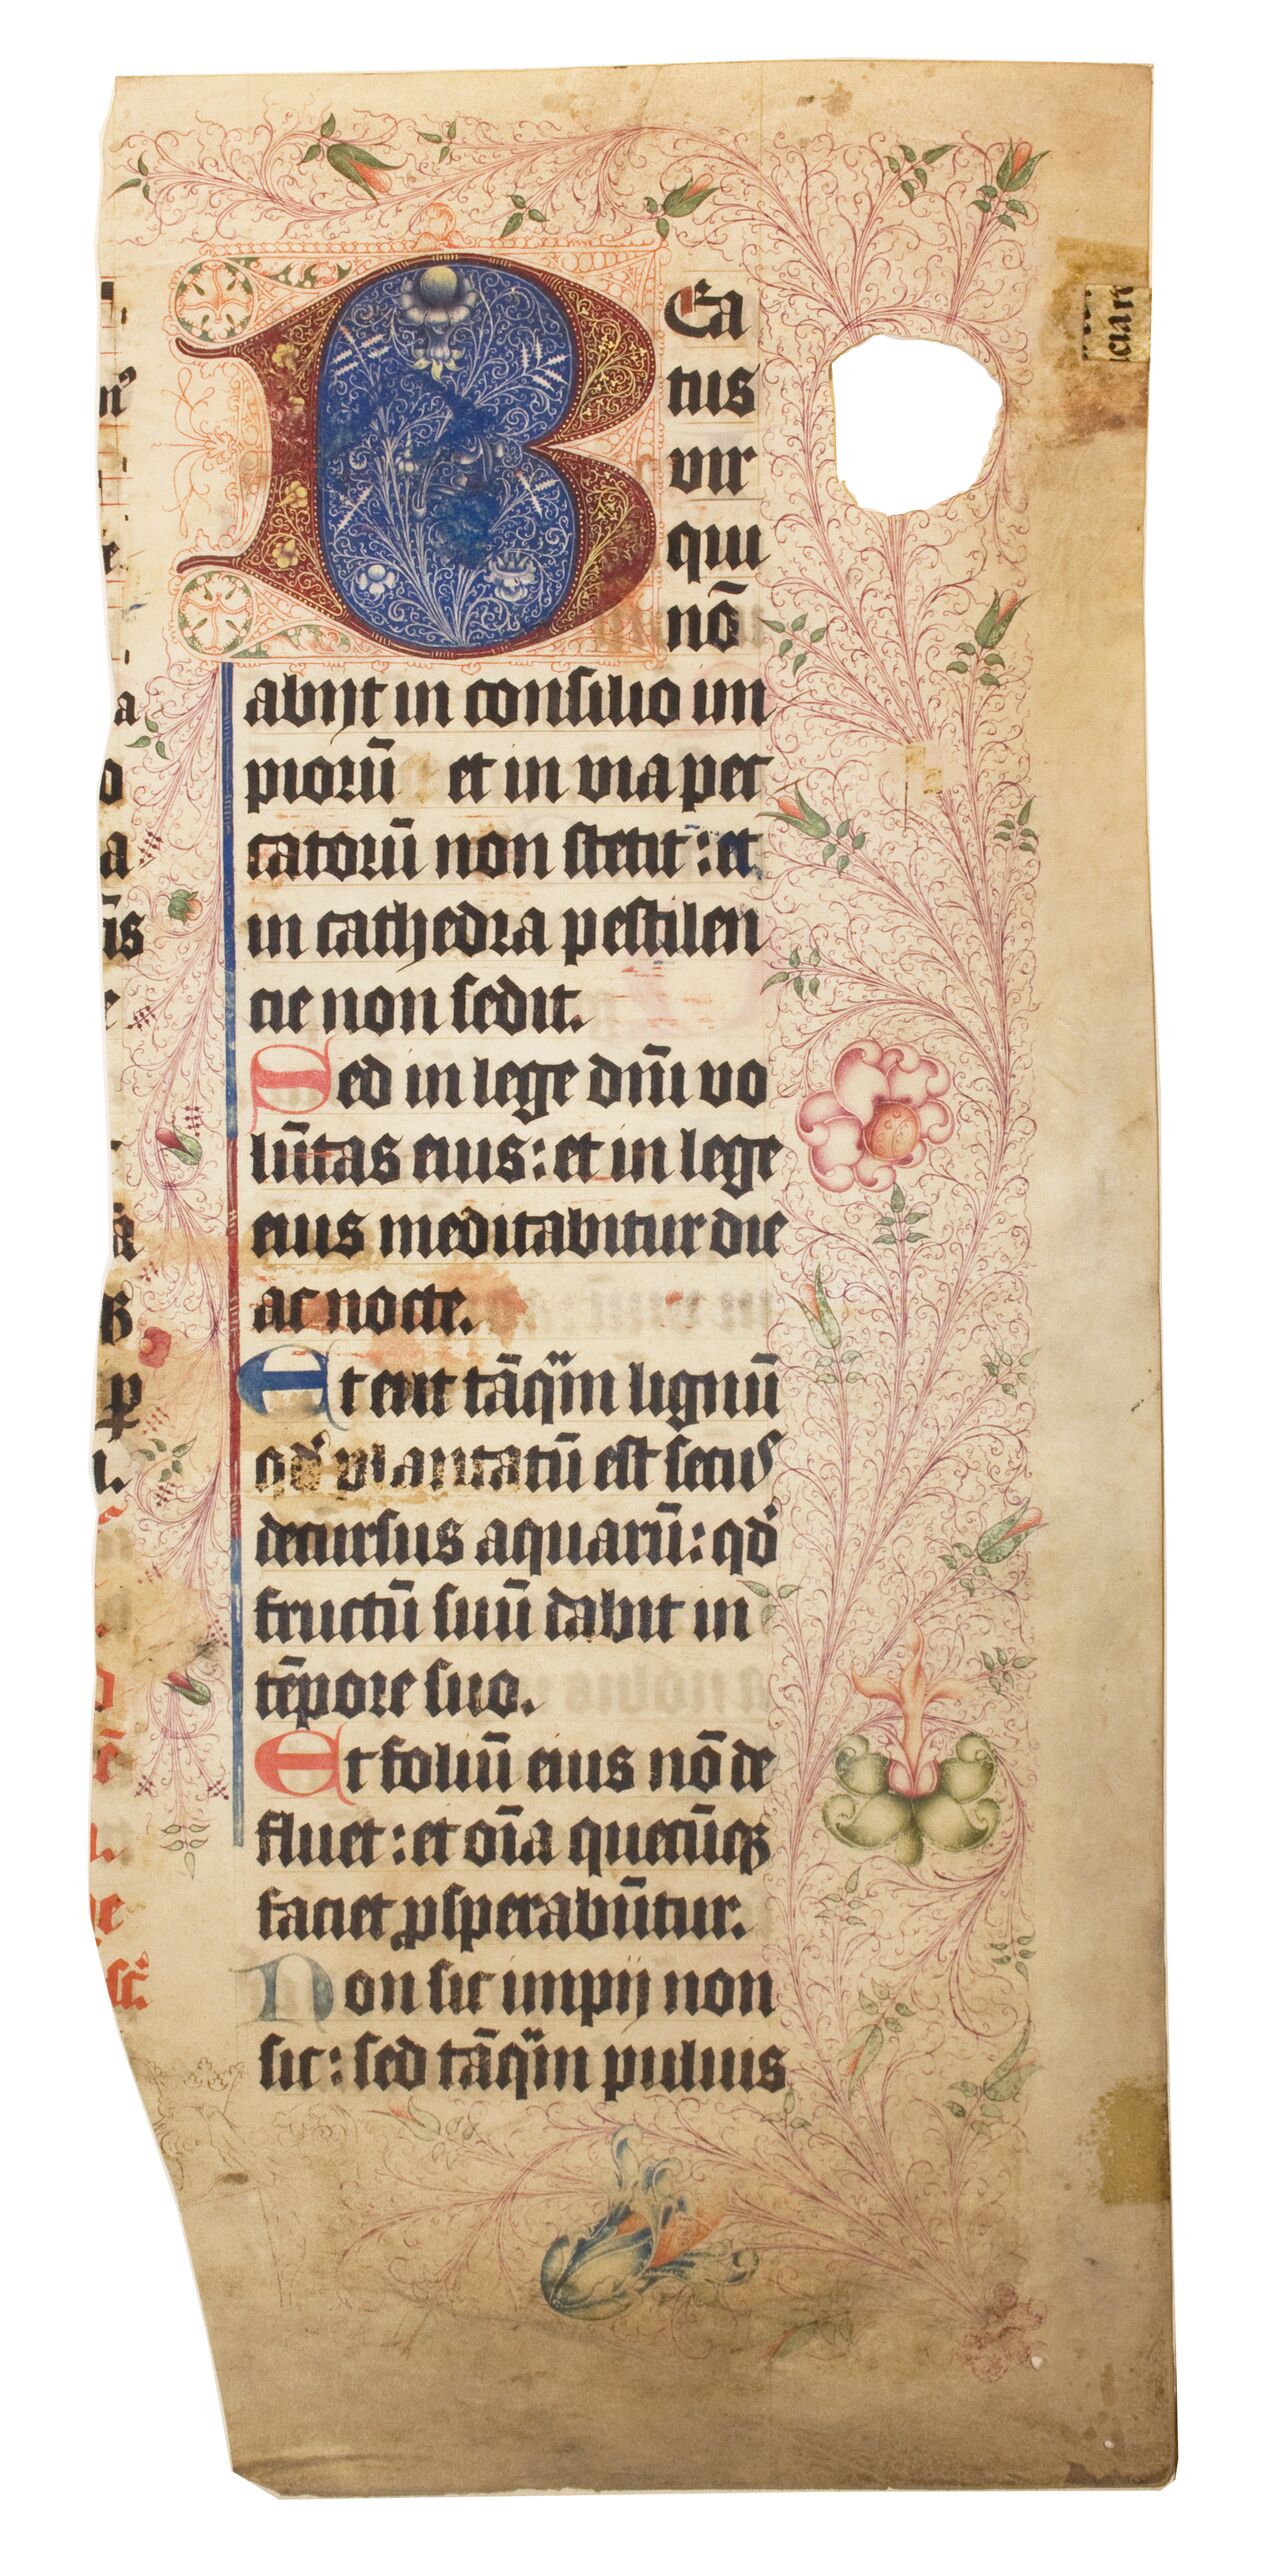 BEa
tus
vir
qui
nō
abijt in consilio im
piorū et in via pec
catorū non stetit : et
in cathedra pestilen
cie non sedit.
Sed in lege dn̄i vo
lūtas eius : et in lege
eius meditabitur die
ac nocte.
Et erit tāqᷓm lignū
qd' plantatū est secus
decursus aquarū : qd'
fructū suū dabit in
tēpore suo.
Et foliū eius nō de
fluet : et oīa quecūqꝫ
faciet ꝓsperabūtur.
Non sic impij non
sic : sed tāqᷓm puluis